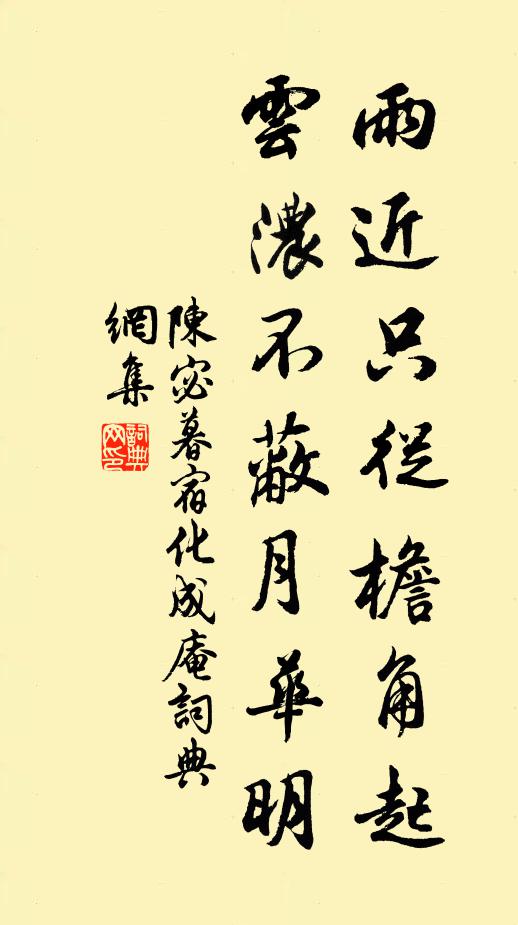 雨近只從檐角起
雲濃不蔽月華明
陳宓暮宿化成庵詞典
網集
詞典
网印